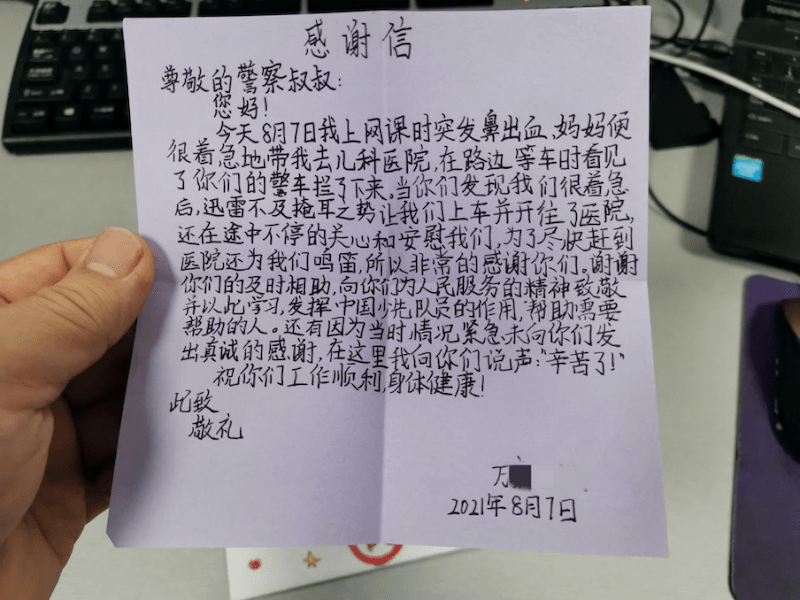 感谢信
尊敬的警察叔叔:
您好!
今天8月7日我上网课时突发鼻出血、妈妈便
很着急地带我去儿科医院,在路边等车时看见
了你们的警车拦了下来。当你们发现我们很着急
后,迅雷不及掩耳之势让我们上车并开往了医院,
还在途中不停的关心和安慰我们,为了尽快赶到
医院还为我们鸣笛,所以非常的感谢你们。谢谢
你们的及时相助,向你们为人民服务的精神致敬
并以此学习,发挥中国少先队员的作用,帮助需要
帮助的人。还有因为当时情况紧急未向你们发
出真诚的感谢,在这里我向你们说声:"辛苦了!"
祝你们工作顺利,身体健康!
此致
敬礼
万
2021年8月7日